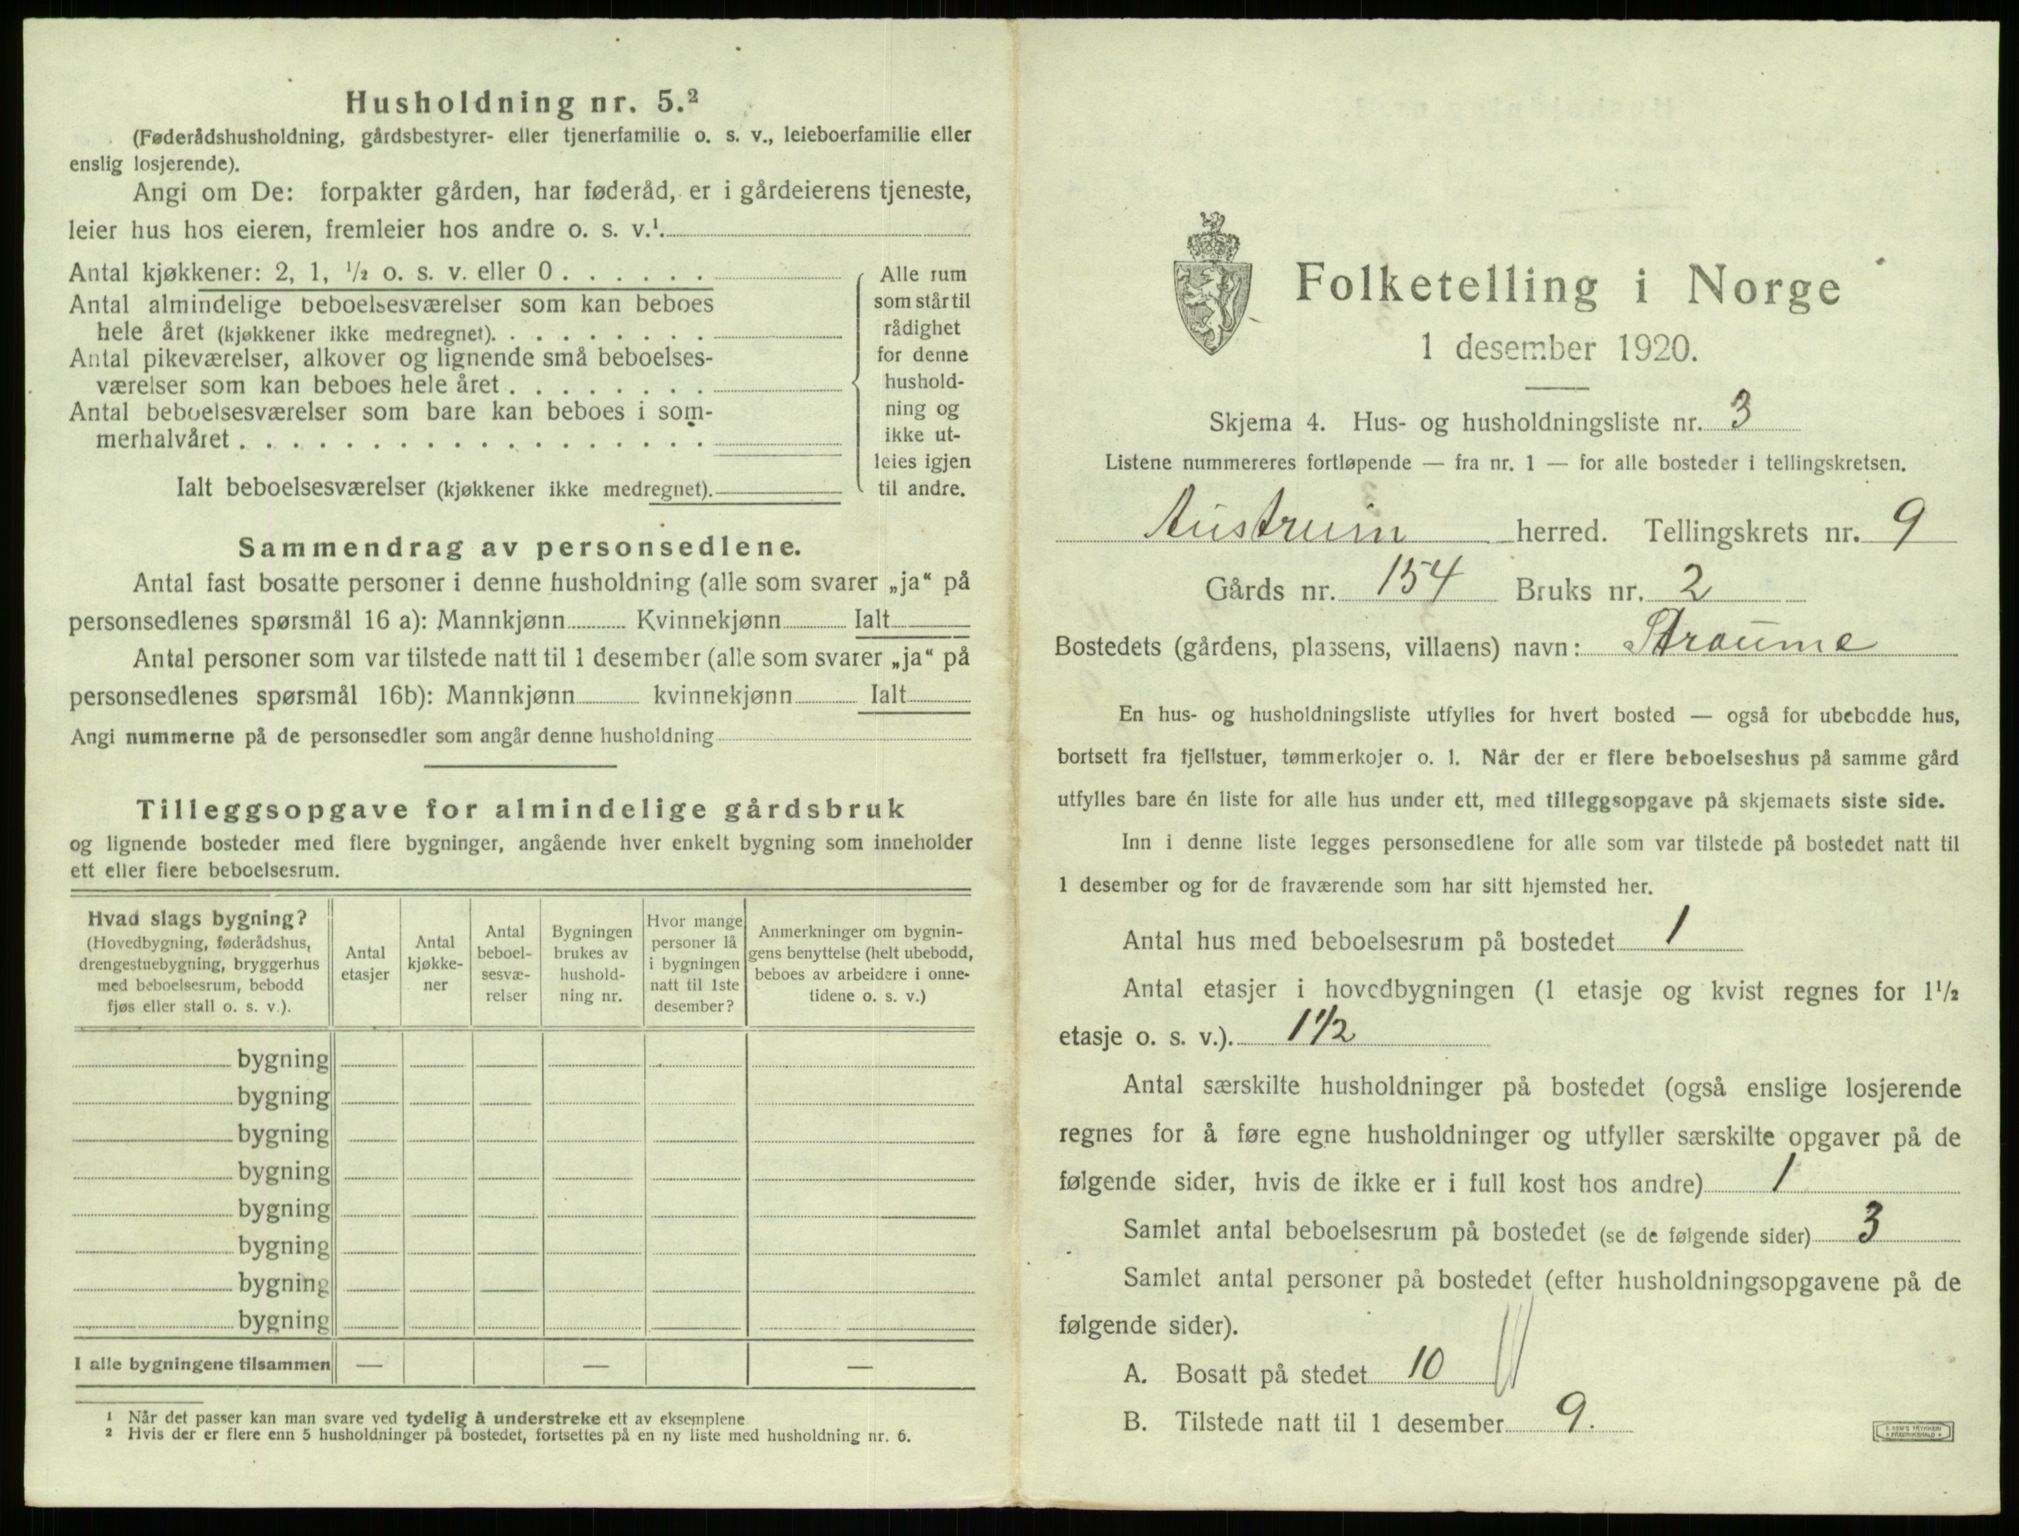 Husholdning nr. 5.²
(Føderådshusholdning, gårdsbestyrer- eller tjenerfamilie o. s. v., leieboerfamilie eller
enslig losjerende).
Angi om De: forpakter gården, har føderåd, er i gårdeierens tjeneste,
leier hus hos eieren, fremleier hos andre o. s. v.¹.
Antal kjøkkener: 2, 1, ½ o. s. v. eller 0 . . . . . .
Antal almindelige beboelsesværelser som kan beboes
hele året (kjøkkener ikke medregnet). . . . . . . . .
Antal pikeværelser, alkover og lignende små beboelses-
værelser som kan beboes hele året . . . . . . . .
Antal beboelsesværelser som bare kan beboes i som-
merhalvåret . . . . . . . . . . . . . . . . . .
Ialt beboelsesværelser (kjøkkener ikke medregnet).
Alle rum
som står til
rådighet
for denne
hushold-
ning og
ikke ut-
leies igjen
til andre.
Sammendrag av personsedlene.
Antal fast bosatte personer i denne husholdning (alle som svarer „ja“ på
personsedlenes spørsmål 16 a): Mannkjønn Kvinnekjønn Ialt
Antal personer som var tilstede natt til 1 desember (alle som svarer „ja“ på
personsedlenes spørsmål 16b): Mannkjønn kvinnekjønn Ialt
Angi nummerne på de personsedler som angår denne husholdning
Tilleggsopgave for almindelige gårdsbruk
og lignende bosteder med flere bygninger, angående hver enkelt bygning som inneholder
ett eller flere beboelsesrum.
Hvad slags bygning?
(Hovedbygning, føderådshus,
drengestuebygning, bryggerhus
med beboelsesrum, bebodd
fjøs eller stall o. s. v.).
Antal
etasjer
Antal
kjøkke-
ner
Antal
beboel-
sesvæ-
relser
Bygningen
brukes av
hushold-
ning nr.
Hvor mange
personer lå
i bygningen
natt til 1ste
desember?
Anmerkninger om bygnin-
gens benyttelse (helt ubebodd,
beboes av arbeidere i onne-
tidene o. s. v.)
bygning
bygning
bygning
bygning
bygning
bygning
bygning
bygning
I alle bygningene tilsammen — — —
¹ Når det passer kan man svare ved tydelig å understreke ett av eksemplene
² Hvis der er flere enn 5 husholdninger på bostedet, fortsettes på en ny liste med husholdning nr. 6.
Folketelling i Norge
1 desember 1920.
Skjema 4. Hus- og husholdningsliste nr. 3
Listene nummereres fortløpende — fra nr. 1 — for alle bosteder i tellingskretsen.
Austrheim herred. Tellingskrets nr. 9
Gårds nr. 154 Bruks nr. 2
Bostedets (gårdens, plassens, villaens) navn: Straume
En hus- og husholdningsliste utfylles for hvert bosted — også for ubebodde hus,
bortsett fra fjellstuer, tømmerkojer o. l. Når der er flere beboelseshus på samme gård
utfylles bare én liste for alle hus under ett, med tilleggsopgave på skjemaets siste side.
Inn i denne liste legges personsedlene for alle som var tilstede på bostedet natt til
1 desember og for de fraværende som har sitt hjemsted her.
Antal hus med beboelsesrum på bostedet 1
Antal etasjer i hovedbygningen (1 etasje og kvist regnes for 1½
etasje o. s. v.). 1½
Antal særskilte husholdninger på bostedet (også enslige losjerende
regnes for å føre egne husholdninger og utfyller særskilte opgaver på de
følgende sider, hvis de ikke er i full kost hos andre) 1
Samlet antal beboelsesrum på bostedet (se de følgende sider) 3
Samlet antal personer på bostedet (efter husholdningsopgavene på de
følgende sider).
A. Bosatt på stedet 10
B. Tilstede natt til 1 desember 9.